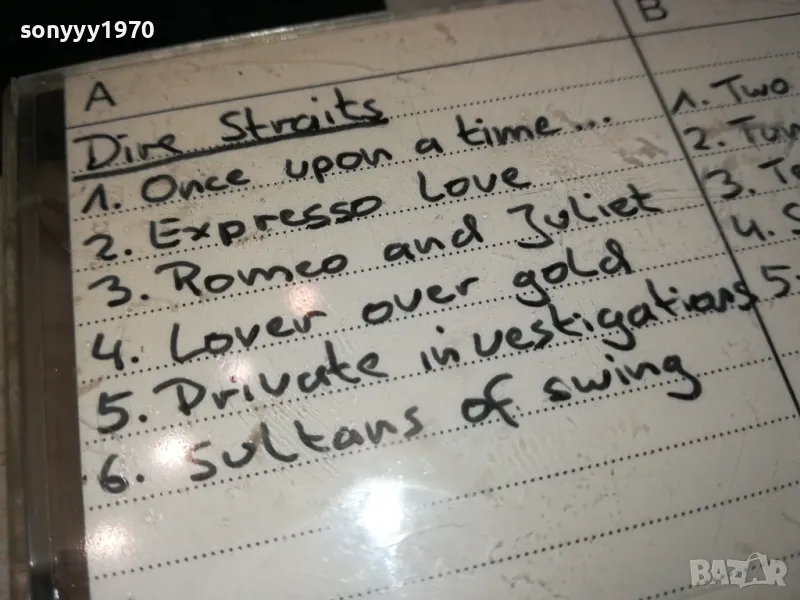 sonyyy1970
A
Dire Straits
1. Once upon a time...
2. Expresso Love
3. Romeo and Juliet
4. Lover over gold
5. Private investigations
6. Sultans of swing
B
1. Two
2.
3.
4.
5.
BAZAR